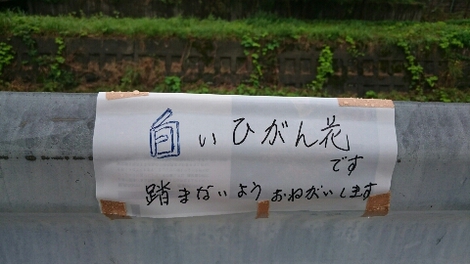 白いひがん花
です
踏まないようおねがいします